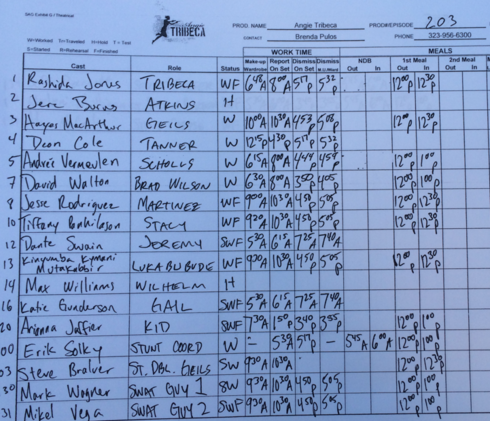 SAG Exhibit G / Theatrical
Angie TRIBECA
PROD. NAME Angie Tribeca PROD#/EPISODE 203
CONTACT Brenda Pulos PHONE 323-956-6300
W=Worked T=Traveled H=Hold T = Test
S=Started R=Rehearsal F=Finished
WORK TIME MEALS
Cast Role Status Make-up Wardrobe Report On Set Dismiss On Set Dismiss M.U./Ward NDB Out In 1st Meal Out In 2nd Meal Out In
1 Rashida Jones TRIBECA WF 648A 800A 517P 532P 1200P 1230P
2 Jere Burns ATKINS H
3 Hayes MacArthur GEILS W 1000A 1030A 453P 508P 1200P 1230P
4 Deon Cole TANNER W 1215P 430P 517P 532P
5 Andrée Vermeulen SCHOLLS W 615A 800A 444P 454P 1200P 100P
7 David Walton BRAD WILSON W 630A 800A 350P 405P 1200P 100P
8 Jesse Rodriguez MARTINEZ WF 900A 1030A 450P 505P 1200P 1230P
10 Tiffany STACY WF 920A 1030A 450P 505P 1200P 1230P
12 Dante Swain JEREMY SWF 530A 615A 725A 740A
13 Kinyumba Kymani Mutakabbir LUKABUBUDE WF 930A 1030A 450P 505P 1200P 1230P
14 Max Williams WILHELM H
16 Katie Gunderson GAIL SWF 530A 615A 725A 740A
20 Arianna Jaffier KID SWF 730A 150P 340P 355P 1200P 100P
00 Erik Solky STUNT COORD W – 53A 517P – 545A 600A 1200P 100P
03 Steve Brolver ST. DBL. GEILS SW 930A 1030A 1200P 1230P
30 Mark Wagner SWAT GUY 1 SW 930A 1030A 450P 505P 1200P 100P
31 Mikel Vega SWAT GUY 2 SWF 930A 1030A 450P 505P 1200P 100P